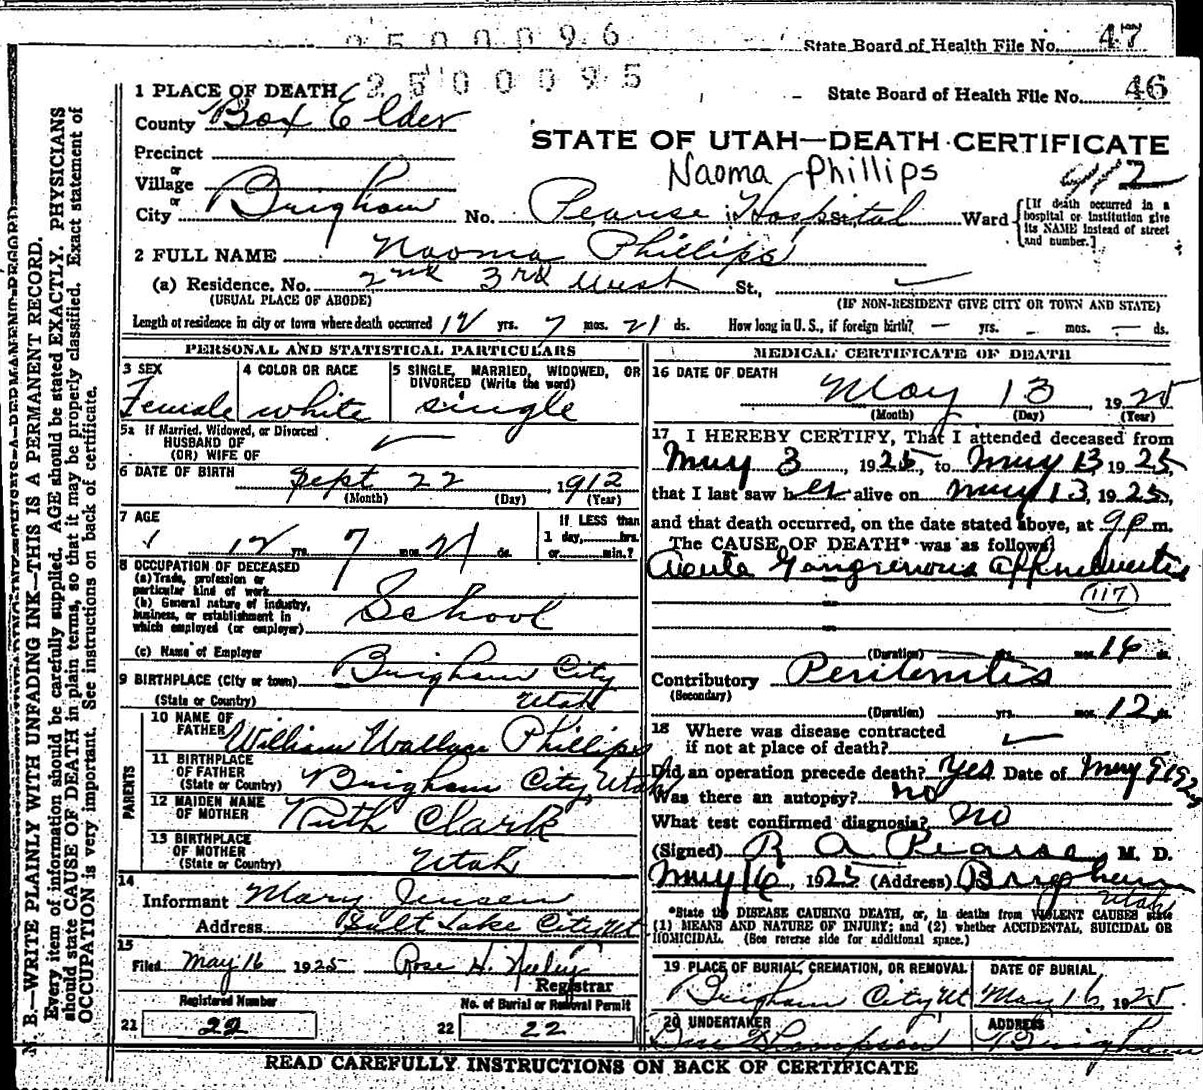 2500096 State Board of Health File No. 47
2500095 State Board of Health File No. 46
1 PLACE OF DEATH
County Box Elder
STATE OF UTAH—DEATH CERTIFICATE
Precinct
Naoma Phillips
or
Village
or
City Brigham No. Pearse Hospital St., Ward
[If death occurred in a
hospital or institution give
its NAME instead of street
and number.]
2 FULL NAME Naoma Phillips
(a) Residence. No. 2nd 3rd West St.,
(USUAL PLACE OF ABODE) (IF NON-RESIDENT GIVE CITY OR TOWN AND STATE)
Length of residence in city or town where death occurred 12 yrs. 7 mos. 21 ds. How long in U. S., if foreign birth? — yrs. - mos. — ds.
PERSONAL AND STATISTICAL PARTICULARS
3 SEX
Female
4 COLOR OR RACE
white
5 SINGLE, MARRIED, WIDOWED, OR
DIVORCED (Write the word)
single
5a If Married, Widowed, or Divorced
HUSBAND OF
(OR) WIFE OF
6 DATE OF BIRTH Sept 22, 1912
(Month) (Day) (Year)
7 AGE
12 yrs. 7 mos. 21 ds.
If LESS than
1 day, hrs.
or min.?
8 OCCUPATION OF DECEASED
(a) Trade, profession or
particular kind of work
(b) General nature of industry,
business, or establishment in
which employed (or employer)
School
(c) Name of Employer
9 BIRTHPLACE (City or town) Brigham City
(State or Country) Utah
PARENTS
10 NAME OF
FATHER William Wallace Phillips
11 BIRTHPLACE
OF FATHER
(State or Country) Brigham City Utah
12 MAIDEN NAME
OF MOTHER Ruth Clark
13 BIRTHPLACE
OF MOTHER
(State or Country) Utah
14
Informant Mary Jensen
Address Salt Lake City Ut
15
Filed May 16 1925 Rose H. Neeley
Registrar
Registered Number No. of Burial or Removal Permit
21 22 22 22
MEDICAL CERTIFICATE OF DEATH
16 DATE OF DEATH
May 13 1925
(Month) (Day) (Year)
17 I HEREBY CERTIFY, That I attended deceased from
May 3, 1925, to May 13 1925,
that I last saw her alive on May 13, 1925,
and that death occurred, on the date stated above, at 9 p m.
The CAUSE OF DEATH* was as follows:
Acute Gangrenous Appendicitis
(117)
(Duration) yrs. mos. 14 ds.
Contributory Peritonitis
(Secondary)
(Duration) yrs. mos. 12 ds.
18 Where was disease contracted
if not at place of death?
Did an operation precede death? Yes Date of May 9 1925
Was there an autopsy? no
What test confirmed diagnosis? no
(Signed) R A Pearse M. D.
May 16, 1925 (Address) Brigham
Utah
*State the DISEASE CAUSING DEATH, or, in deaths from VIOLENT CAUSES state
(1) MEANS AND NATURE OF INJURY; and (2) whether ACCIDENTAL, SUICIDAL OR
HOMICIDAL. (See reverse side for additional space.)
19 PLACE OF BURIAL, CREMATION, OR REMOVAL
Brigham City Ut
DATE OF BURIAL
May 16, 1925
20 UNDERTAKER
Thompson
ADDRESS
Brigham
READ CAREFULLY INSTRUCTIONS ON BACK OF CERTIFICATE
N. B.—WRITE PLAINLY WITH UNFADING INK—THIS IS A PERMANENT RECORD.
Every item of information should be carefully supplied. AGE should be stated EXACTLY. PHYSICIANS
should state CAUSE OF DEATH in plain terms, so that it may be properly classified. Exact statement of
OCCUPATION is very important. See instructions on back of certificate.